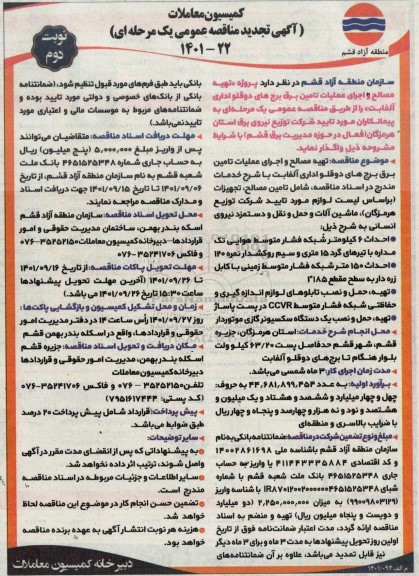 کمیسیون معاملات
(آگهی تجدید مناقصه عمومی یک مرحله ای)
۲۲ - ۱۴۰۱
نوبت
دوم
منطقه آزاد قشم
سازمان منطقه آزاد قشم در نظر دارد پروژه «تهیه
مصالح و اجرای عملیات تامین برق برج های دوقلو اداری
آلفابت» را از طریق مناقصه عمومی یک مرحله‌ای به
پیمانکاران مورد تایید شرکت توزیع نیروی برق استان
هرمزگان (فعال در حوزه مدیریت برق قشم) با شرایط
مشروحه ذیل واگذار نماید.
موضوع مناقصه: تهیه مصالح و اجرای عملیات تامین
برق برج های دوقلو اداری آلفابت با شرح خدمات
مندرج در اسناد مناقصه، شامل تامین مصالح، تجهیزات
(براساس لیست لوازم مورد تایید شرکت توزیع
هرمزگان)، ماشین آلات و حمل و نقل و دستمزد نیروی
انسانی به شرح ذیل:
احداث ۶ کیلومتر شبکه فشار متوسط هوایی تک
مداره با تیرهای گرد ۱۵ متری و سیم روکشدار نمره ۱۲۰
احداث ۱۵۰ متر شبکه فشار متوسط زمینی با کابل
زره دار به سطح مقطع ۱۸۵*۳
تهیه، حمل و نصب تابلوهای لوازم اندازه گیری و
حفاظتی شبکه فشار متوسط CCVR در پست پاساژ
تهیه، حمل و نصب یک دستگاه سکسیونر گازی موتوردار
محل انجام شرح خدمات: استان هرمزگان، جزیره
قشم، شهر قشم حدفاصل پست ۶۳/۲۰ کیلو ولت
بلوار هنگام تا برج‌های دوقلو آلفابت
مدت زمان اجرای کار: ۳ ماه شمسی می‌باشد.
برآورد اولیه: به عدد ۴۴,۶۸۱,۸۹۹,۴۵۴ به حروف:
چهل و چهار میلیارد و ششصد و هشتاد و یک میلیون و
هشتصد و نود و نه هزار و چهارصد و پنجاه و چهار ریال
با ضرایب بالاسری و منطقه‌ای
مبلغ و نوع تضمین شرکت در مناقصه: ضمانتنامه بانکی به نام
سازمان منطقه آزاد قشم باشناسه ملی ۱۴۰۰۲۸۶۱۶۹۸
و کد اقتصادی ۴۱۱۴۴۳۳۳۵۸۸۴ یا واریز به حساب
جاری ۴۶۵۱۵۲۵۳۴۸ بانک ملت شعبه قشم با شماره
(۹۹۰۰۹۸۰۳۱۲۹) به میزان ۲,۲۵۰,۰۰۰,۰۰۰ (دو میلیارد
و دویست و پنجاه میلیون ریال) تهیه و منضم به اسناد
مناقصه ارائه گردد، مدت اعتبار ضمانت‌نامه فوق از تاریخ
اولین روز تحویل پیشنهادها به مدت ۳ ماه و برای ۳ ماه دیگر
نیز قابل تمدید می‌باشد، علاوه بر آن ضمانتنامه‌های
بانکی باید طبق فرم‌های مورد قبول تنظیم شود، (ضمانتنامه
بانکی از بانک‌های خصوصی و دولتی مورد تایید بوده و
ضمانتنامه‌های مربوط به موسسات مالی و اعتباری مورد
تایید نمی‌باشد.)
مهلت دریافت اسناد مناقصه: متقاضیان می‌توانند
پس از واریز مبلغ ۵,۰۰۰,۰۰۰ (پنج میلیون) ریال
به حساب جاری شماره ۴۶۵۱۵۲۵۳۴۸ بانک ملت
شعبه قشم به نام سازمان منطقه آزاد قشم، از تاریخ
۱۴۰۱/۰۹/۰۶ تا تاریخ ۱۴۰۱/۰۹/۱۵ جهت دریافت اسناد
و مدارک مناقصه مراجعه نمایند.
محل تحویل اسناد مناقصه: سازمان منطقه آزاد قشم
اسکله بندر بهمن، ساختمان مدیریت حقوقی و امور
قراردادها-دبیرخانه کمیسیون معاملات ۳۵۲۵۲۱۵۰-۰۷۶
و فاکس ۳۵۲۴۱۷۰۶-۰۷۶
مهلت تحویل پاکات مناقصه: از تاریخ ۱۴۰۱/۰۹/۱۶
تا ۱۴۰۱/۰۹/۲۶ (آخرین مهلت تحویل پیشنهادها
ساعت ۱۵:۳۰ تاریخ ۱۴۰۱/۰۹/۲۶ می باشد.)
زمان و محل تشکیل کمیسیون و بازگشایی پاکت‌ها:
روز ۱۴۰۱/۰۹/۲۷ رأس ساعت ۱۴ در دفتر مدیریت امور
حقوقی و قراردادها، واقع در اسکله بندر بهمن قشم
مکان دریافت و تحویل اسناد مناقصه: جزیره قشم
اسکله بندر بهمن، مدیریت امور حقوقی و قراردادها
دبیرخانه کمیسیون معاملات
تلفن ۳۵۲۵۲۱۵۰ - ۰۷۶ و فاکس ۳۵۲۴۱۷۰۶-۰۷۶
(کد پستی: ۷۹۵۱۶۱۷۴۴۴)
پیش پرداخت: قرارداد شامل پیش پرداخت ۲۰ درصد
طبق ضوابط می‌باشد.
سایر توضیحات:
به پیشنهاداتی که پس از انقضای مدت مقرر در آگهی
واصل شوند، ترتیب اثر داده نخواهد شد.
سایر اطلاعات و جزئیات مربوطه در اسناد مناقصه
مندرج است.
تضمین حسن انجام کار در موضوع این مناقصه لحاظ
خواهد شد.
هزینه هر نوبت انتشار آگهی به عهده برنده مناقصه
خواهد بود.
دبیرخانه کمیسیون معاملات